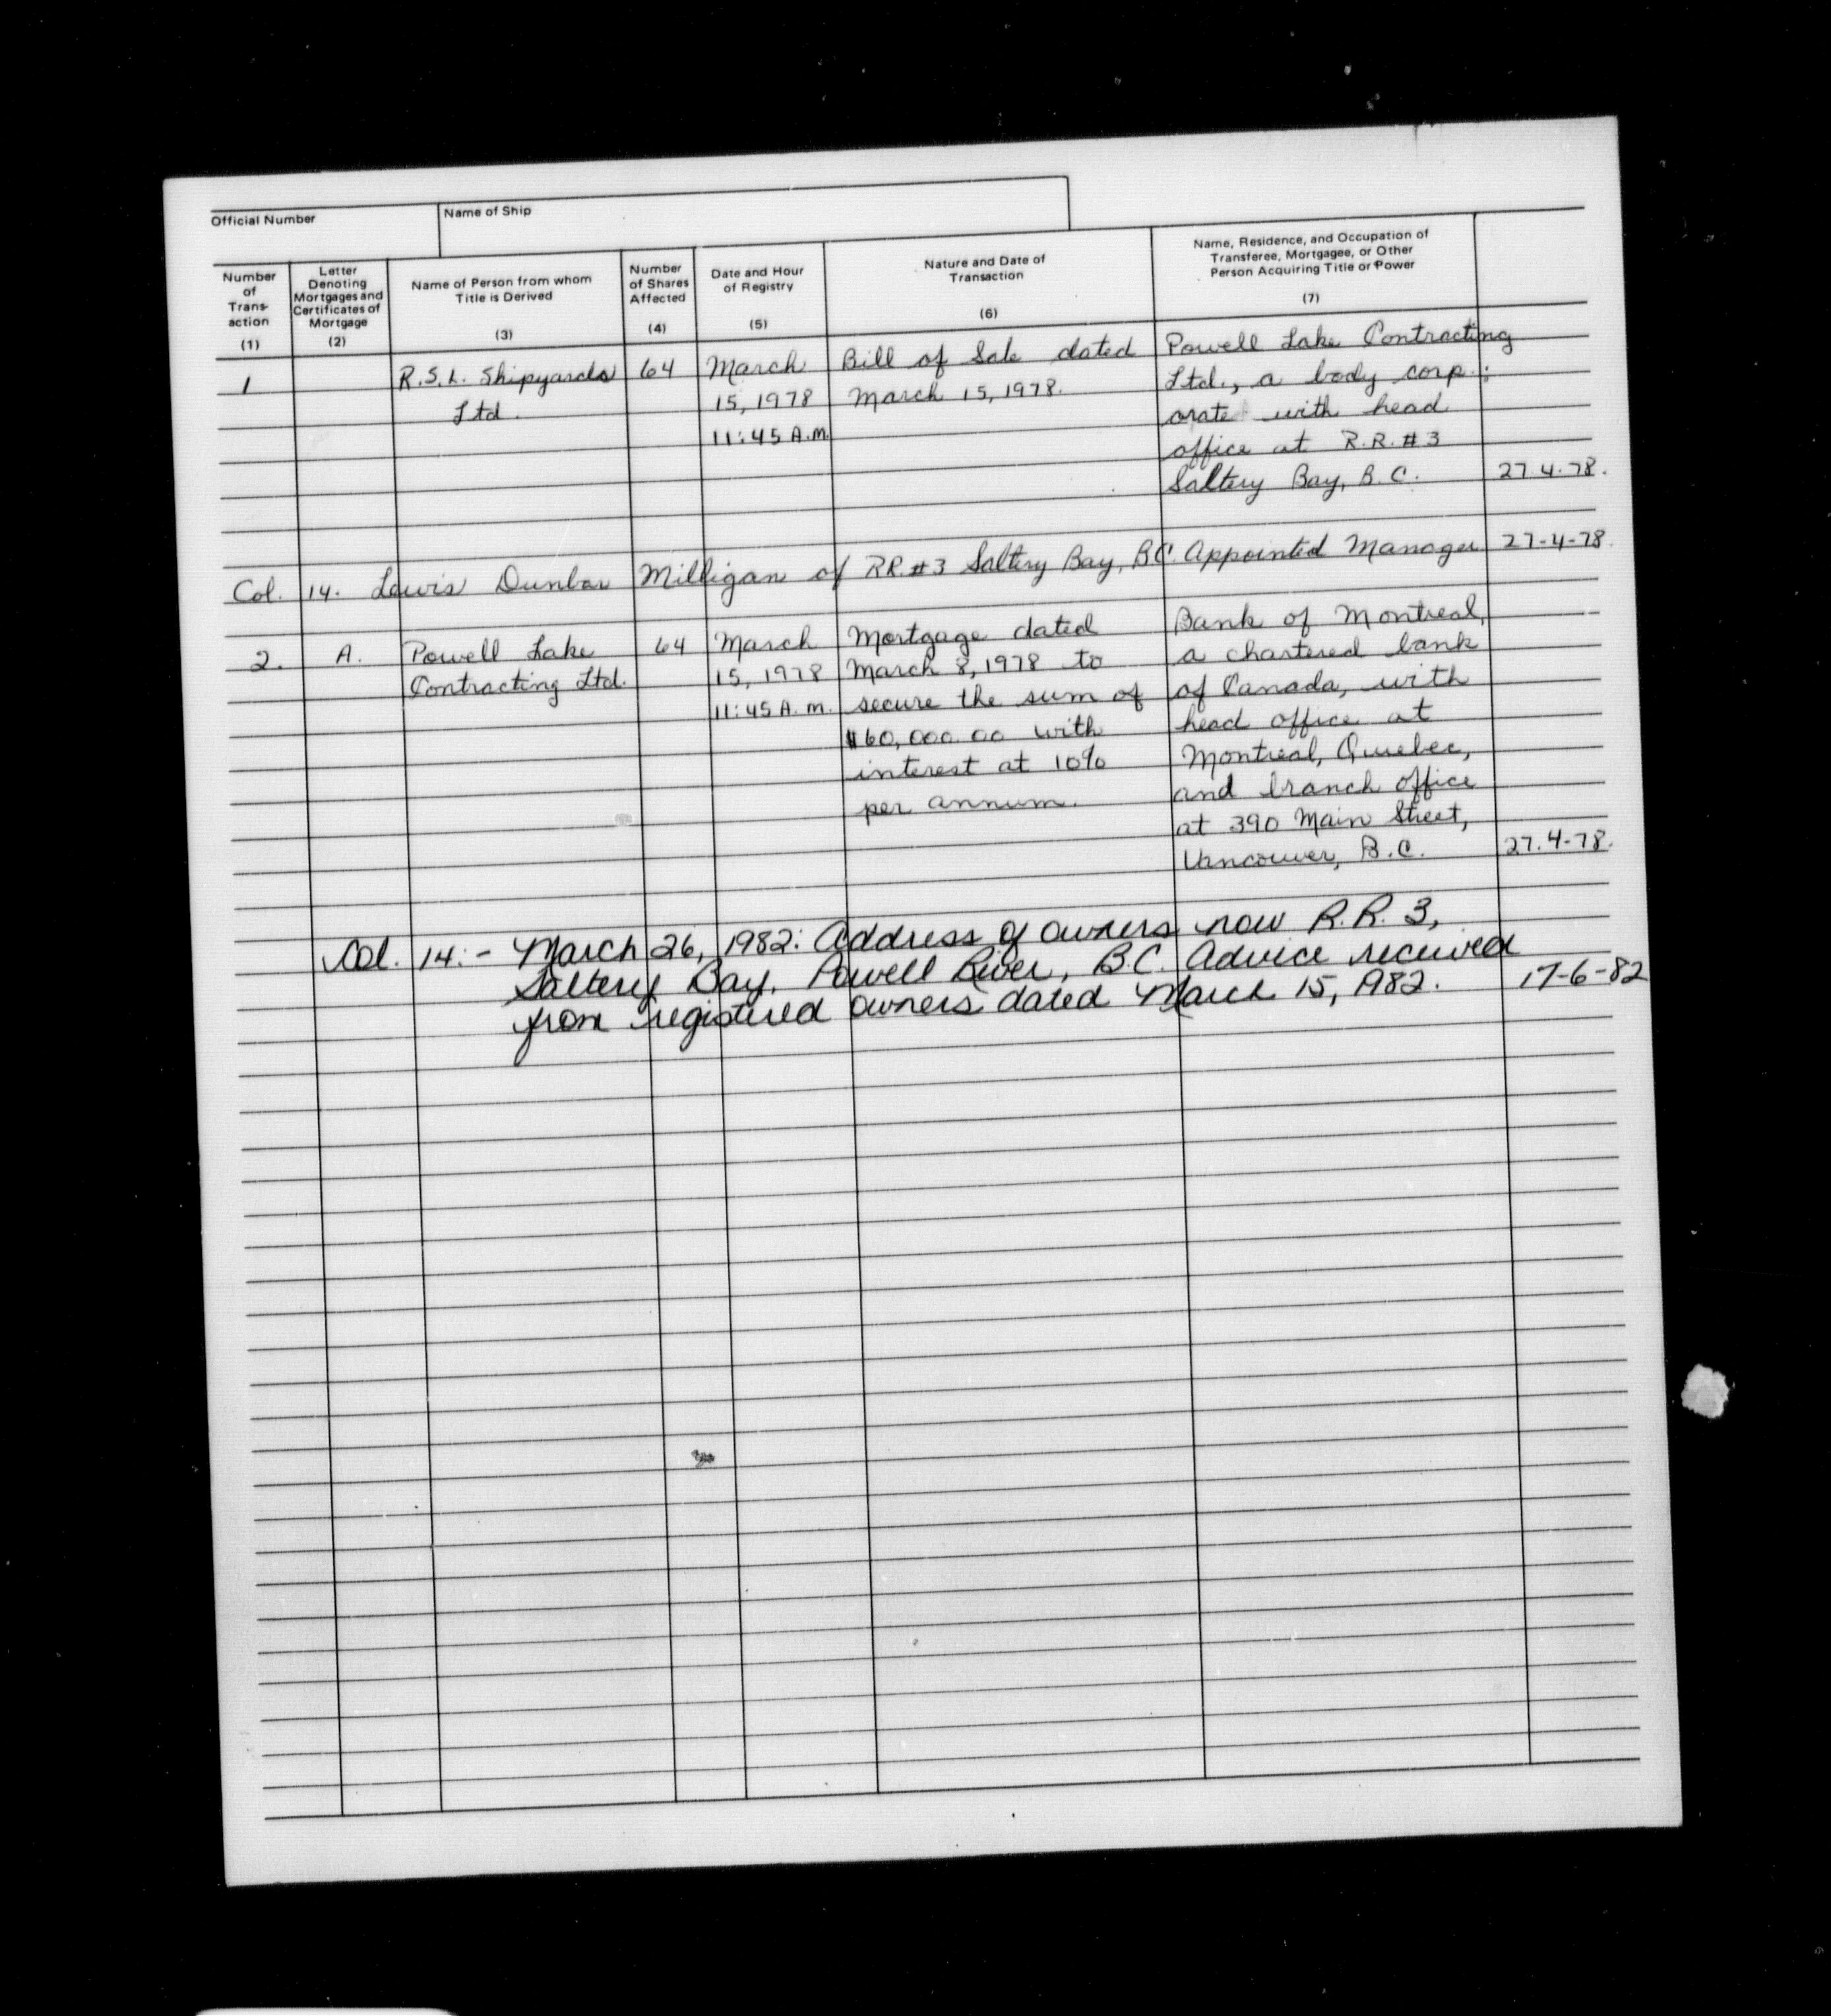 Official Number
Name of Ship
Number of Trans- action (1)
Letter Denoting Mortgages and Certificates of Mortgage (2)
Name of Person from whom Title is Derived (3)
Number of Shares Affected (4)
Date and Hour of Registry (5)
Nature and Date of Transaction (6)
Name, Residence, and Occupation of Transferee, Mortgagee, or Other Person Acquiring Title or Power (7)
1
R.S.L. Shipyards
Ltd.
64
March
15, 1978
11:45 A.M.
Bill of Sale dated
March 15, 1978.
Powell Lake Contracting
Ltd., a body corp-
orate with head
office at R.R. #3
Saltery Bay, B.C.
27.4.78.
Col. 14. Lewis Dunbar Milligan of RR.#3 Saltery Bay, BC. Appointed Manager 27-4-78.
2.
A.
Powell Lake
Contracting Ltd.
64
March
15, 1978
11:45 A.M.
Mortgage dated
March 8, 1978 to
secure the sum of
$60,000.00 with
interest at 10%
per annum.
Bank of Montreal,
a chartered bank
of Canada, with
head office at
Montreal, Quebec,
and branch office
at 390 Main Street,
Vancouver, B.C.
27.4-78.
Col. 14:- March 26, 1982: Address of owners now R.R. 3,
Saltery Bay, Powell River, B.C. Advice received
from registered owners dated March 15, 1982. 17-6-82